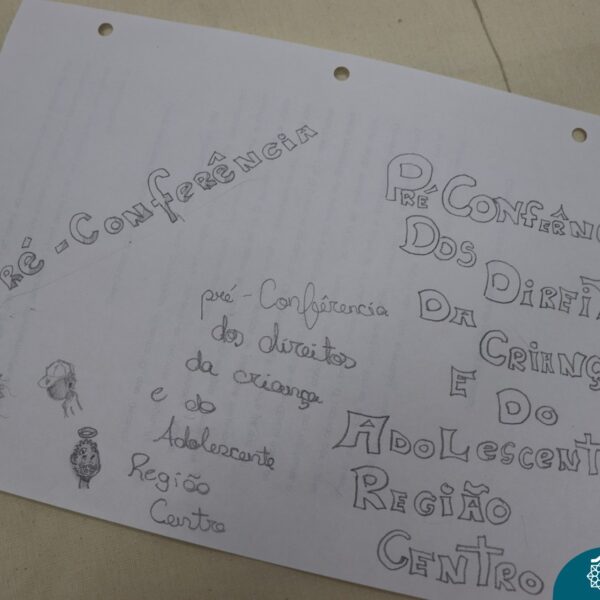 RÉ-CONFERÊNCIA
pré-Conférencia
dos direitos
da criança
e do
Adolescente
Região
Centro
PRÉ CONFERÊN
DOS DIREIT
DA CRIANÇ
E DO
ADOLESCENT
REGIÃO
CENTRO